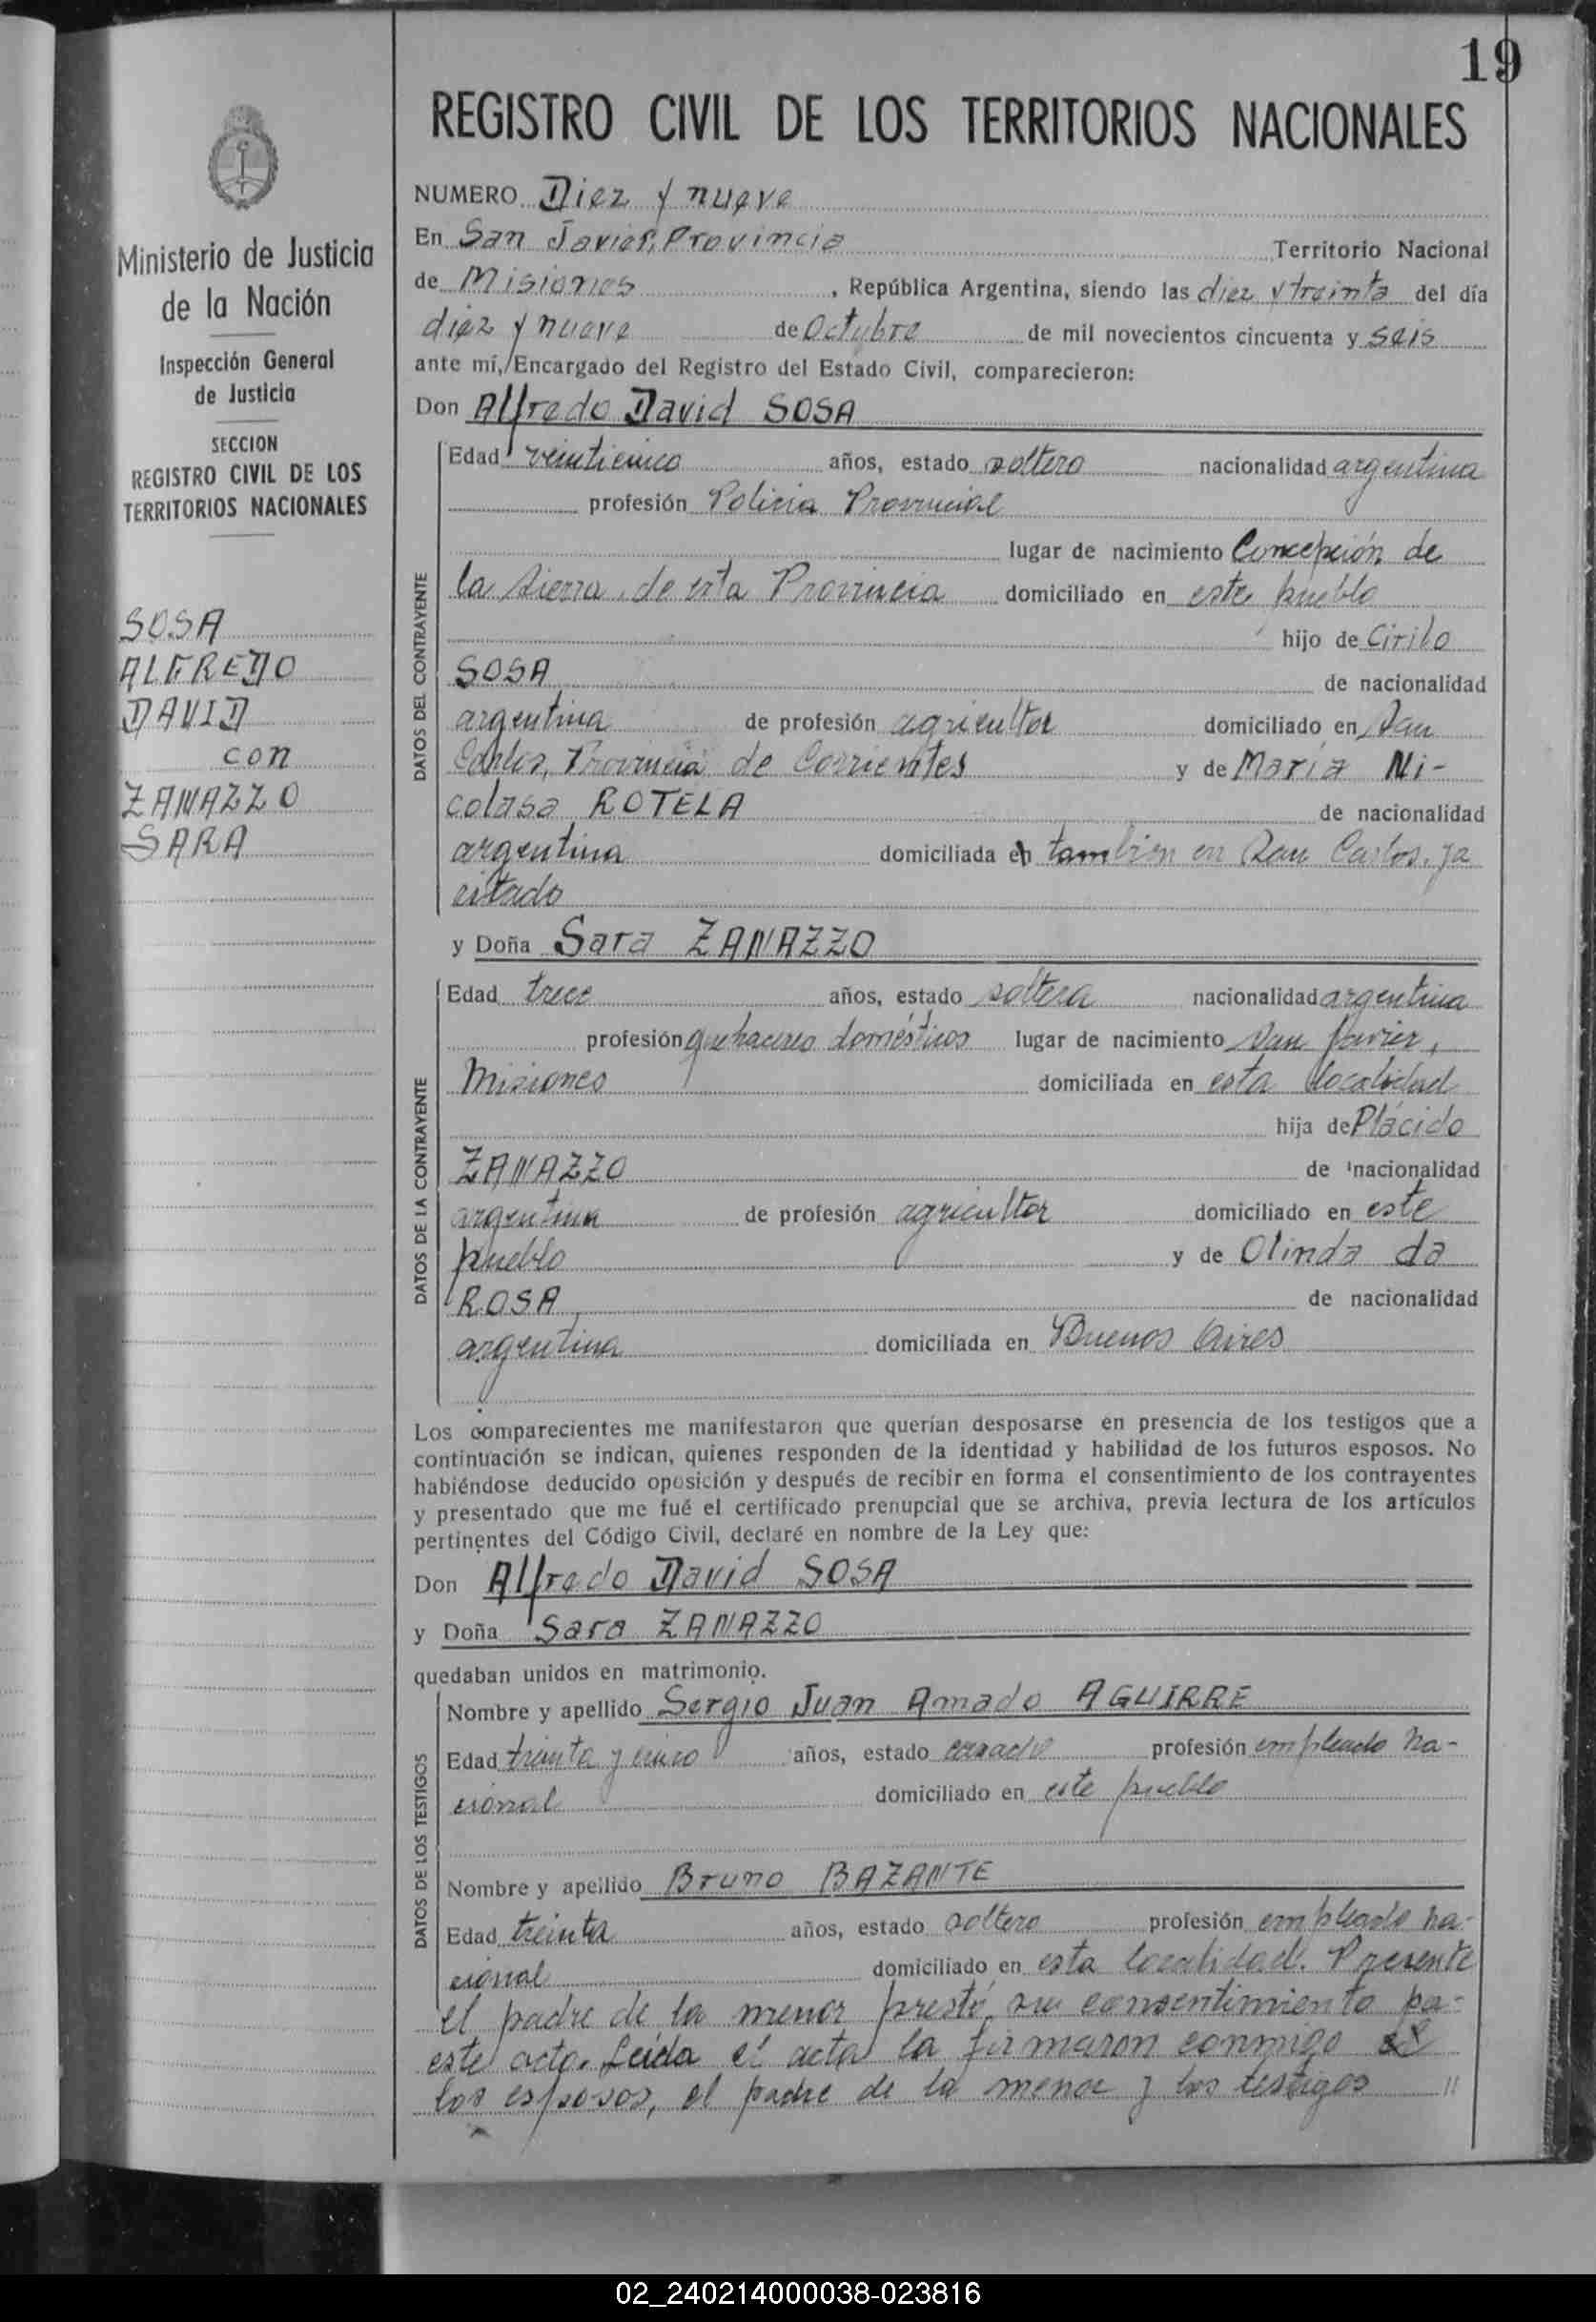 19
REGISTRO CIVIL DE LOS TERRITORIOS NACIONALES
Ministerio de Justicia
de la Nación
Inspección General
de Justicia
SECCION
REGISTRO CIVIL DE LOS
TERRITORIOS NACIONALES
SOSA
ALFREDO
DAVID
con
ZANAZZO
SARA
NUMERO Diez y nueve
En San Javier, Provincia Territorio Nacional
de Misiones, República Argentina, siendo las diez y treinta del día
diez y nueve de Octubre de mil novecientos cincuenta y seis
ante mí, Encargado del Registro del Estado Civil, comparecieron:
Don Alfredo David SOSA
DATOS DEL CONTRAYENTE
Edad veinticinco años, estado soltero nacionalidad argentina
profesión Policia Provincial
lugar de nacimiento Concepción de
la Sierra, de esta Provincia domiciliado en este pueblo
hijo de Cirilo
SOSA de nacionalidad
argentina de profesión agricultor domiciliado en San
Carlos, Provincia de Corrientes y de María Ni-
colasa ROTELA de nacionalidad
argentina domiciliada en tambien en San Carlos, ya
citado
y Doña Sara ZANAZZO
DATOS DE LA CONTRAYENTE
Edad trece años, estado soltera nacionalidad argentina
profesión quehaceres domésticos lugar de nacimiento San Javier,
Misiones domiciliada en esta localidad
hija de Plácido
ZANAZZO de nacionalidad
argentina de profesión agricultor domiciliado en este
pueblo y de Olinda da
ROSA de nacionalidad
argentina domiciliada en Buenos Aires
Los comparecientes me manifestaron que querían desposarse en presencia de los testigos que a
continuación se indican, quienes responden de la identidad y habilidad de los futuros esposos. No
habiéndose deducido oposición y después de recibir en forma el consentimiento de los contrayentes
y presentado que me fué el certificado prenupcial que se archiva, previa lectura de los artículos
pertinentes del Código Civil, declaré en nombre de la Ley que:
Don Alfredo David SOSA
y Doña Sara ZANAZZO
quedaban unidos en matrimonio.
DATOS DE LOS TESTIGOS
Nombre y apellido Sergio Juan Amado AGUIRRE
Edad treinta y cinco años, estado casado profesión empleado na-
cional domiciliado en este pueblo
Nombre y apellido Bruno BAZANTE
Edad treinta años, estado soltero profesión empleado na-
cional domiciliado en esta localidad. Presente
el padre de la menor prestó su consentimiento pa-
este acto. Leida el acta la firmaron conmigo
los esposos, el padre de la menor y los testigos "
02_240214000038-023816